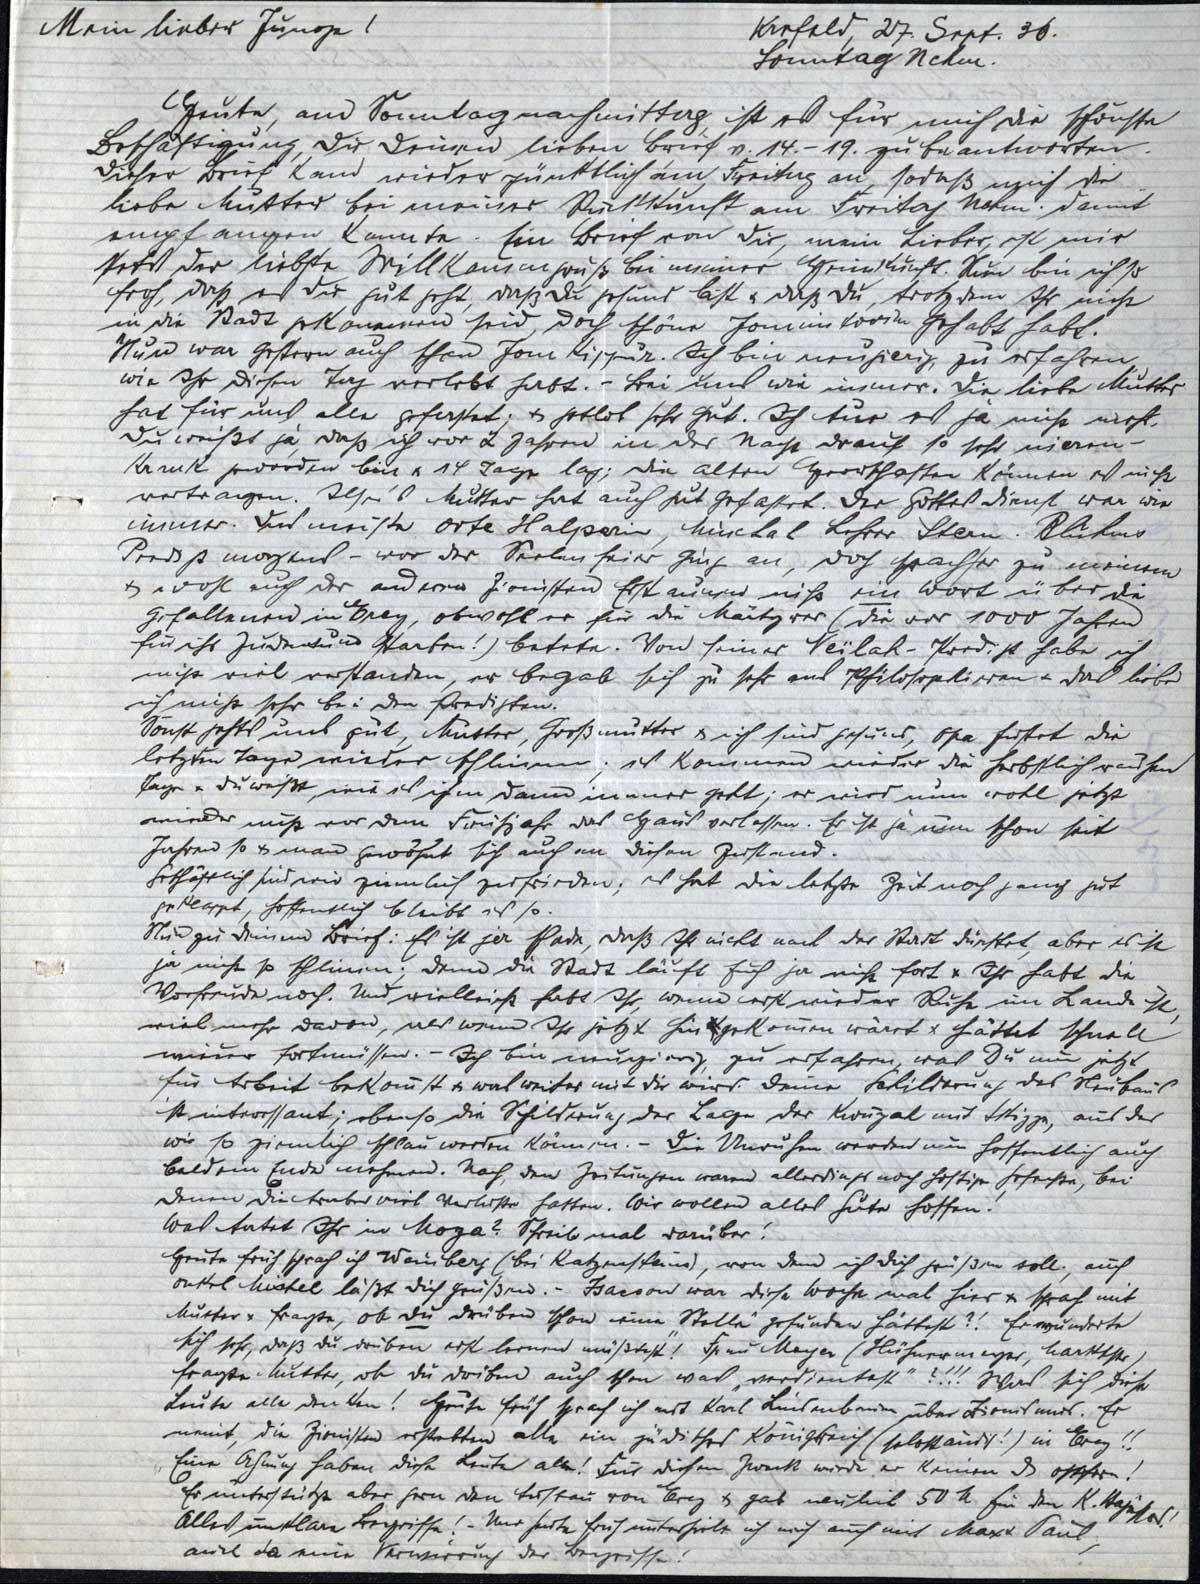 Mein lieber Junge!
Krefeld, 27. Sept. 36.
Sonntag Nchm.
Heute, am Sonntagnachmittag ist es für mich die schönste
Beschäftigung, Dir Deinen lieben Brief v. 14.-19. zu beantworten.
Dieser Brief kam wieder pünktlich am Freitag an, sodaß mich die
liebe Mutter bei meiner Rückkunft am Freitag Nchm. damit
empfangen konnte. Ein Brief von Dir, mein Lieber, ist mir
stets der liebste Willkommgruß bei meiner Heimkunft. Nun bin ich so
froh, daß es Dir gut geht, daß Du gesund bist & daß Du, trotzdem Ihr nicht
in die Stadt gekommen seid, doch schöne Jomim towim gehabt habt.
Nun war gestern auch schon Jom Kippur. Ich bin neugierig zu erfahren,
wie Ihr diesen Tag verlebt habt. - Bei uns wie immer. Die liebe Mutter
hat für uns alle gefastet, & gottlob sehr gut. Ich tue es ja nicht mehr.
Du weißt ja daß ich vor 2 Jahren in der Nacht drauf so sehr nieren-
krank geworden bin & 14 Tage lag; die alten Herrschaften können es nicht
vertragen. Ilse's Mutter hat auch gut gefastet. Der Gottesdienst war wie
immer. Das meiste orte Halperin, Lehrer Stern. Blühms
Predigt morgens - vor der Seelenfeier ging an, doch sprach er zu meinem
& wohl auch der anderen Zionisten Erstaunen nicht ein Wort über die
Gefallenen in Erez, obwohl er für die Märtyrer (die vor 1000 Jahren
für ihr Judentum starben!) betete. Von seiner Neïlah-Predigt habe ich
nicht viel verstanden, er begab sich zu sehr aufs Philosophieren & das liebe
ich nicht sehr bei den Predigten.
Sonst gehts uns gut, Mutter, Großmutter & ich sind gesund, Opa hustet die
letzten Tage wieder schlimm; es kommen wieder die herbstlich rauhen
Tage & Du weißt wie es ihm dann immer geht; er wird nun wohl jetzt
wieder nicht vor dem Frühjahr das Haus verlassen. Er ist ja nun schon seit
Jahren so & man gewöhnt sich auch an diesen Zustand.
Geschäftlich sind wir ziemlich zufrieden; es hat die letzte Zeit noch ganz gut
geklappt, hoffentlich bleibt es so.
Nun zu Deinem Brief: Es ist ja schade, daß Ihr nicht nach der Stadt durftet, aber es ist
ja nicht so schlimm; denn die Stadt läuft Euch ja nicht fort & Ihr habt die
Vorfreude noch. Und vielleicht habt Ihr, wenn erst wieder Ruhe im Lande ist,
viel mehr davon, als wenn Ihr jetzt hingekommen wäret & hättet schnell
wieder fortmüssen. - Ich bin neugierig zu erfahren, was Du nun jetzt
für Arbeit bekommst & was weiter mit Dir wird. Deine Schilderung des Neubaus
ist interessant; ebenso die Schilderung der Lage der Kwuzah mit Skizze, aus der
wir so ziemlich schlau werden können. - Die Unruhen werden nun hoffentlich auch
bald ein Ende nehmen. Nach den Zeitungen waren allerdings noch heftige Gefechte, bei
denen die Araber viel Verluste hatten. Wir wollen alles Gute hoffen.
Was tatet Ihr in Moza? Schreib mal darüber!
Heute früh sprach ich Weinberg (bei Katzenstein), von dem ich Dich grüßen soll, auch
Onkel Michel läßt Dich grüßen. - Isacson war diese Woche mal hier & sprach mit
Mutter & fragte, ob Du drüben schon eine "Stelle" gefunden hättest?! Er wunderte
sich sehr, daß Du drüben erst lernen müßtest! Frau Meyer (Hühnermeyer, Marktstr.)
fragte Mutter, ob Du drüben auch schon was "verdientest"?!!! Was sich diese
Leute alle denken! Heute früh sprach ich mit Karl Lindenbaum über Zionismus. Er
meint, die Zionisten erstrebten alle ein jüdisches Königreich (selbständig!) in Erez!!
Eine Ahnung haben diese Leute alle! Für diesen Zweck würde er keinen opfern!
Er unterstützt aber gern den Aufbau von Erez & gab neulich 50 M für den K. Hajessod!
Alles unklare Begriffe! - Nur heute früh unterhielt ich mich auch mit Max & Paul,
auch da eine Verwirrung der Begriffe!